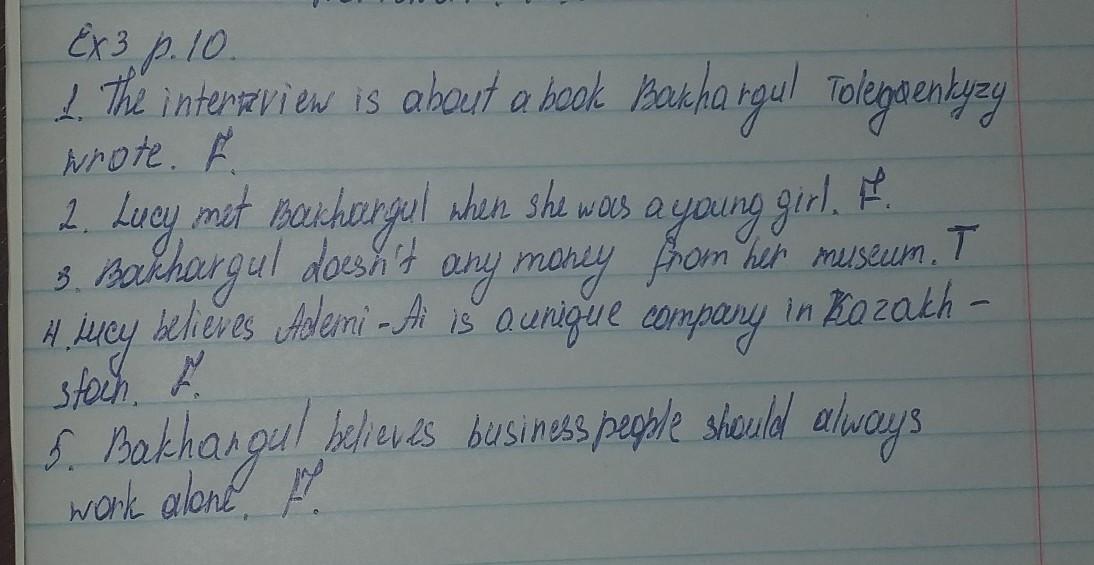 Ex3 p.10.
1. The interview is about a book Bakhargul Tolegaenkyzy
wrote. F.
2. Lucy met Bakhargul when she was a young girl. F.
3. Bakhargul doesn't any money from her museum. T
4. Lucy believes Ademi-Ai is a unique company in Kazakh-
stan. F.
5. Bakhargul believes business people should always
work alone. F.